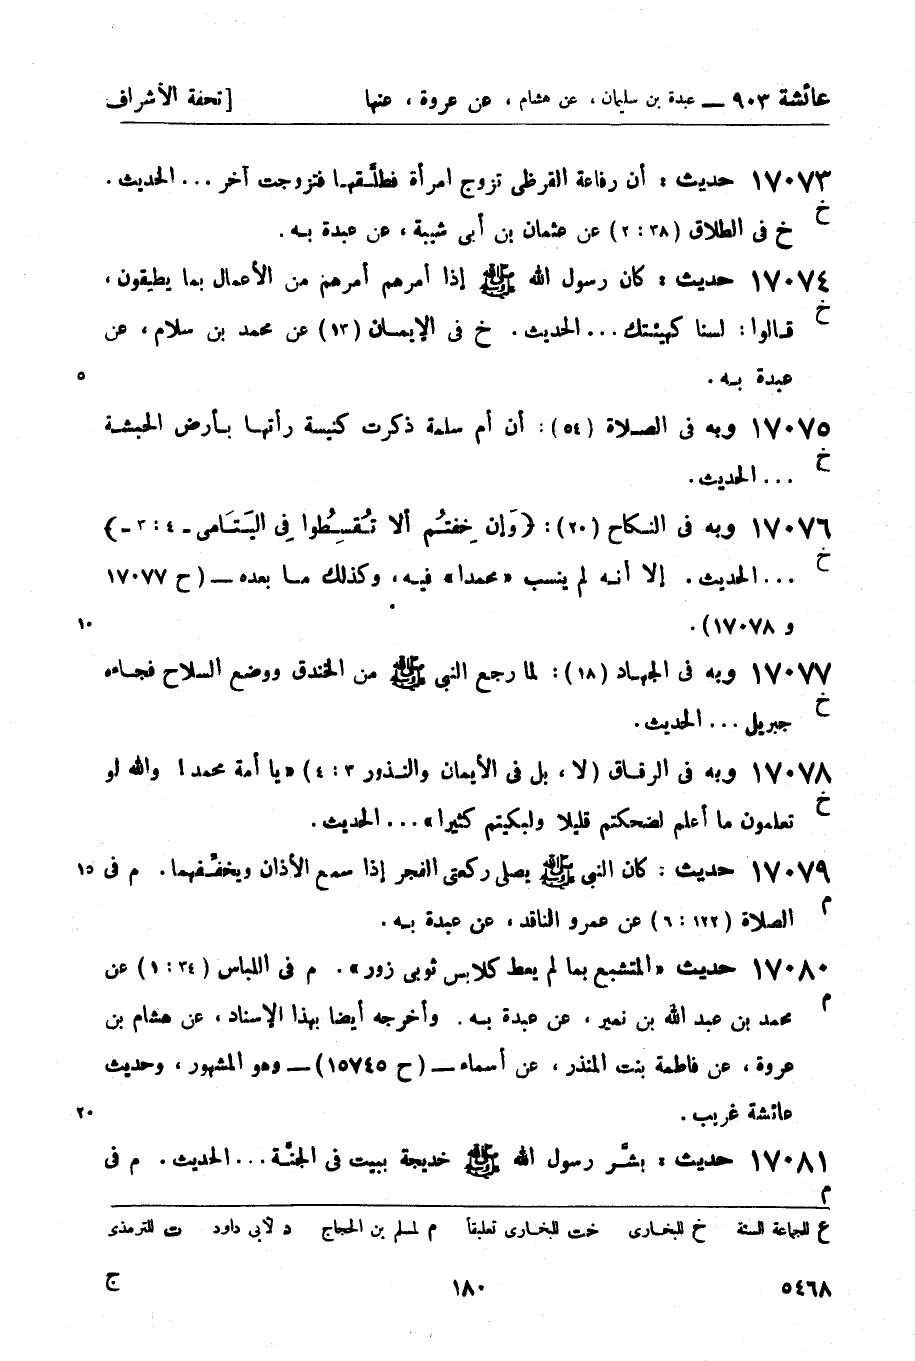 عائشة ٩٠٣ — عبدة بن سليمان ، عن هشام ، عن عروة ، عنها [تحفة الأشراف
١٧٠٧٣ حديث : أن رفاعة القرظى تزوج امرأة فطلَّقها فتزوجت آخر ... الحديث .
خ
خ فى الطلاق (٣٨ : ٢) عن عثمان بن أبى شيبة ، عن عبدة بـه .
١٧٠٧٤ حديث : كان رسول الله ﷺ إذا أمرهم أمرهم من الأعمال بما يطيقون ،
خ
قالوا : لسنا كهيئتك ... الحديث . خ فى الإيمان (١٣) عن محمد بن سلام ، عن
عبدة بـه . ٥
١٧٠٧٥ وبه فى الصلاة (٥٤) : أن أم سلمة ذكرت كنيسة رأتها بأرض الحبشة
خ
... الحديث .
١٧٠٧٦ وبه فى النكاح (٢٠) : ﴿وَإن خِفتُم ألا تُقسِطُوا فِى اليَتَامى ـ ٤ : ٣ ـ﴾
خ
... الحديث . إلا أنه لم ينسب «محمدا» فيه ، وكذلك ما بعده — (ح ١٧٠٧٧
و ١٧٠٧٨) . ١٠
١٧٠٧٧ وبه فى الجهاد (١٨) : لما رجع النبى ﷺ من الخندق ووضع السلاح فجاءه
خ
جبريل ... الحديث .
١٧٠٧٨ وبه فى الرقاق (لا ، بل فى الأيمان والنذور ٣ : ٤) «يا أمة محمد ! والله لو
خ
تعلمون ما أعلم لضحكتم قليلا ولبكيتم كثيرا» ... الحديث .
١٧٠٧٩ حديث : كان النبى ﷺ يصلى ركعتى الفجر إذا سمع الأذان ويخفِّفهما . م فى ١٥
م
الصلاة (١٢٢ : ٦) عن عمرو الناقد ، عن عبدة بـه .
١٧٠٨٠ حديث «المتشبع بما لم يعط كلابس ثوبى زور» . م فى اللباس (٣٤ : ١) عن
م
محمد بن عبد الله بن نمير ، عن عبدة بـه . وأخرجه أيضا بهذا الإسناد ، عن هشام بن
عروة ، عن فاطمة بنت المنذر ، عن أسماء — (ح ١٥٧٤٥) — وهو المشهور ، وحديث
عائشة غريب . ٢٠
١٧٠٨١ حديث : بشَّر رسول الله ﷺ خديجة ببيت فى الجنَّة ... الحديث . م فى
م
ع للجماعة الستة خ للبخارى خت للبخارى تعليقاً م لمسلم بن الحجاج د لأبى داود ت للترمذى
٥٤٦٨ ١٨٠ ج